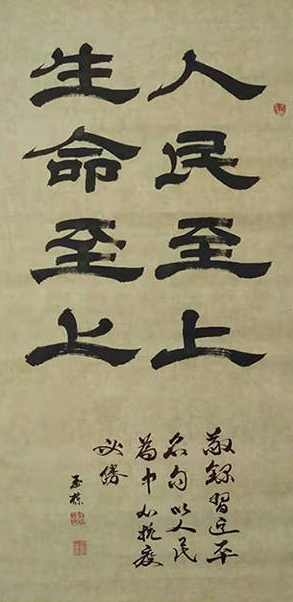 人民至上
生命至上
敬錄習近平
名句以人民
為中心抗疫
必勝